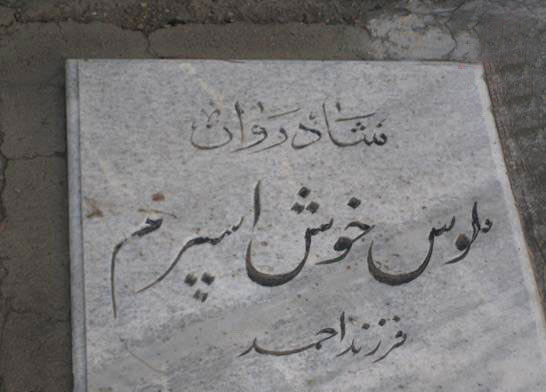 شادروان
طوس خوش اسپرم
فرزند احمد